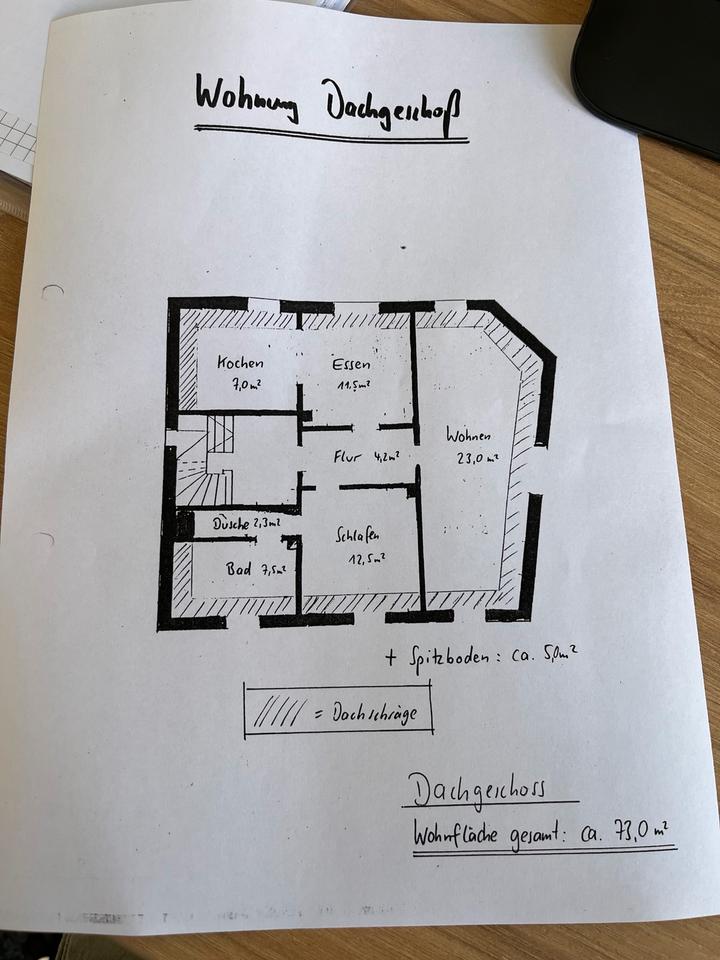 Wohnung Dachgeschoß
Kochen
7,0 m²
Essen
11,5 m²
Wohnen
23,0 m²
Flur 4,2 m²
Dusche 2,3 m²
Schlafen
12,5 m²
Bad 7,5 m²
+ Spitzboden: ca. 5,0 m²
= Dachschräge
Dachgeschoss
Wohnfläche gesamt: ca. 73,0 m²